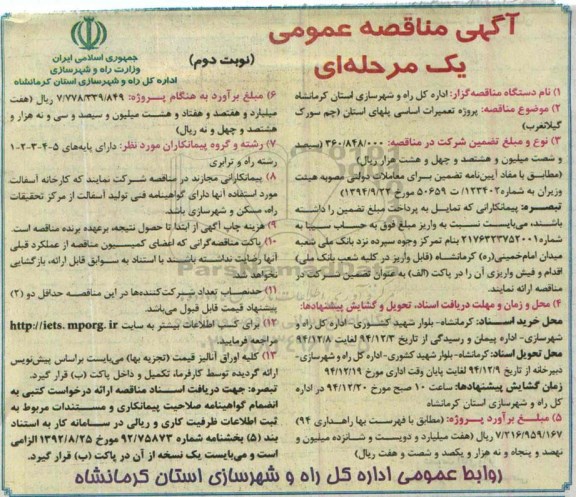 آگهی مناقصه عمومی
یک مرحله‌ای
(نوبت دوم)
جمهوری اسلامی ایران
وزارت راه و شهرسازی
اداره کل راه و شهرسازی استان کرمانشاه
۱) نام دستگاه مناقصه‌گزار: اداره کل راه و شهرسازی استان کرمانشاه
۲) موضوع مناقصه: پروژه تعمیرات اساسی پلهای استان (چم سورک
گیلانغرب)
۳) نوع و مبلغ تضمین شرکت در مناقصه: ۳۶۰/۸۴۸/۰۰۰ (سیصد
و شصت میلیون و هشتصد و چهل و هشت هزار ریال)
(مطابق با مفاد آیین‌نامه تضمین برای معاملات دولتی مصوبه هیئت
وزیران به شماره ۱۲۳۴۰۲/ت ۵۰۶۵۹ مورخ ۱۳۹۴/۹/۲۲)
تبصره: پیمانکارانی که تمایل به پرداخت مبلغ تضمین را داشته
باشند، می‌بایست نسبت به واریز مبلغ فوق به حساب سیبا به
شماره ۲۱۷۶۳۲۳۷۵۲۰۰۱ بنام تمرکز وجوه سپرده نزد بانک ملی شعبه
میدان امام‌خمینی(ره) کرمانشاه (قابل واریز در کلیه شعب بانک ملی)
اقدام و فیش واریزی آن را در پاکت (الف) به عنوان تضمین شرکت در
مناقصه ارائه نمایند.
۴) محل و زمان و مهلت دریافت اسناد، تحویل و گشایش پیشنهادها:
محل خرید اسناد: کرمانشاه- بلوار شهید کشوری- اداره کل راه و
شهرسازی- اداره پیمان و رسیدگی از تاریخ ۹۴/۱۲/۳ لغایت ۹۴/۱۲/۸
محل تحویل اسناد: کرمانشاه- بلوار شهید کشوری- اداره کل راه و شهرسازی-
دبیرخانه از تاریخ ۹۴/۱۲/۹ لغایت پایان وقت اداری مورخ ۹۴/۱۲/۱۹
زمان گشایش پیشنهادها: ساعت ۱۰ صبح مورخ ۹۴/۱۲/۲۰ در اداره
کل راه و شهرسازی استان کرمانشاه
۵) مبلغ برآورد پروژه: (مطابق با فهرست بها راهداری ۹۴)
۷/۲۱۶/۹۵۹/۱۶۷ ریال (هفت میلیارد و دویست و شانزده میلیون و
نهصد و پنجاه و نه هزار و یکصد و شصت و هفت ریال)
۶) مبلغ برآورد به هنگام پروژه: ۷/۷۷۸/۳۳۹/۸۴۹ ریال (هفت
میلیارد و هفتصد و هفتاد و هشت میلیون و سیصد و سی و نه هزار و
هشتصد و چهل و نه ریال)
۷) رشته و گروه پیمانکاران مورد نظر: دارای پایه‌های ۵-۴-۳-۲-۱
رشته راه و ترابری
۸) پیمانکارانی مجازند در مناقصه شرکت نمایند که کارخانه آسفالت
مورد استفاده آنها دارای گواهینامه فنی تولید آسفالت از مرکز تحقیقات
راه، مسکن و شهرسازی باشد.
۹) هزینه چاپ آگهی از ابتدا تا حصول نتیجه، برعهده برنده مناقصه است
۱۰) پاکت مناقصه‌گرانی که اعضای کمیسیون مناقصه از عملکرد قبلی
آنها رضایت نداشته باشند با استناد به سوابق قابل ارائه، بازگشایی
نخواهد شد
۱۱) حدنصاب تعداد شرکت‌کننده‌ها در این مناقصه حداقل دو (۲)
پیشنهاد قیمت قابل قبول می‌باشد.
۱۲) برای کسب اطلاعات بیشتر به سایت http://iets.mporg.ir
مراجعه فرمایید.
۱۳) کلیه اوراق آنالیز قیمت (تجزیه بها) می‌بایست براساس پیش‌نویس
ارائه گردیده توسط کارفرما، تکمیل و داخل پاکت (ب) قرار گیرد.
تبصره: جهت دریافت اسناد مناقصه ارائه درخواست کتبی به
انضمام گواهینامه صلاحیت پیمانکاری و مستندات مربوط به
ثبت اطلاعات ظرفیت کاری و ریالی در سامانه کار به استناد
بند (۵) بخشنامه شماره ۹۲/۷۵۸۷۳ مورخ ۱۳۹۲/۸/۲۵ الزامی
است و می‌بایست یک نسخه از آن در پاکت (ب) قرار گیرد.
روابط عمومی اداره کل راه و شهرسازی استان کرمانشاه